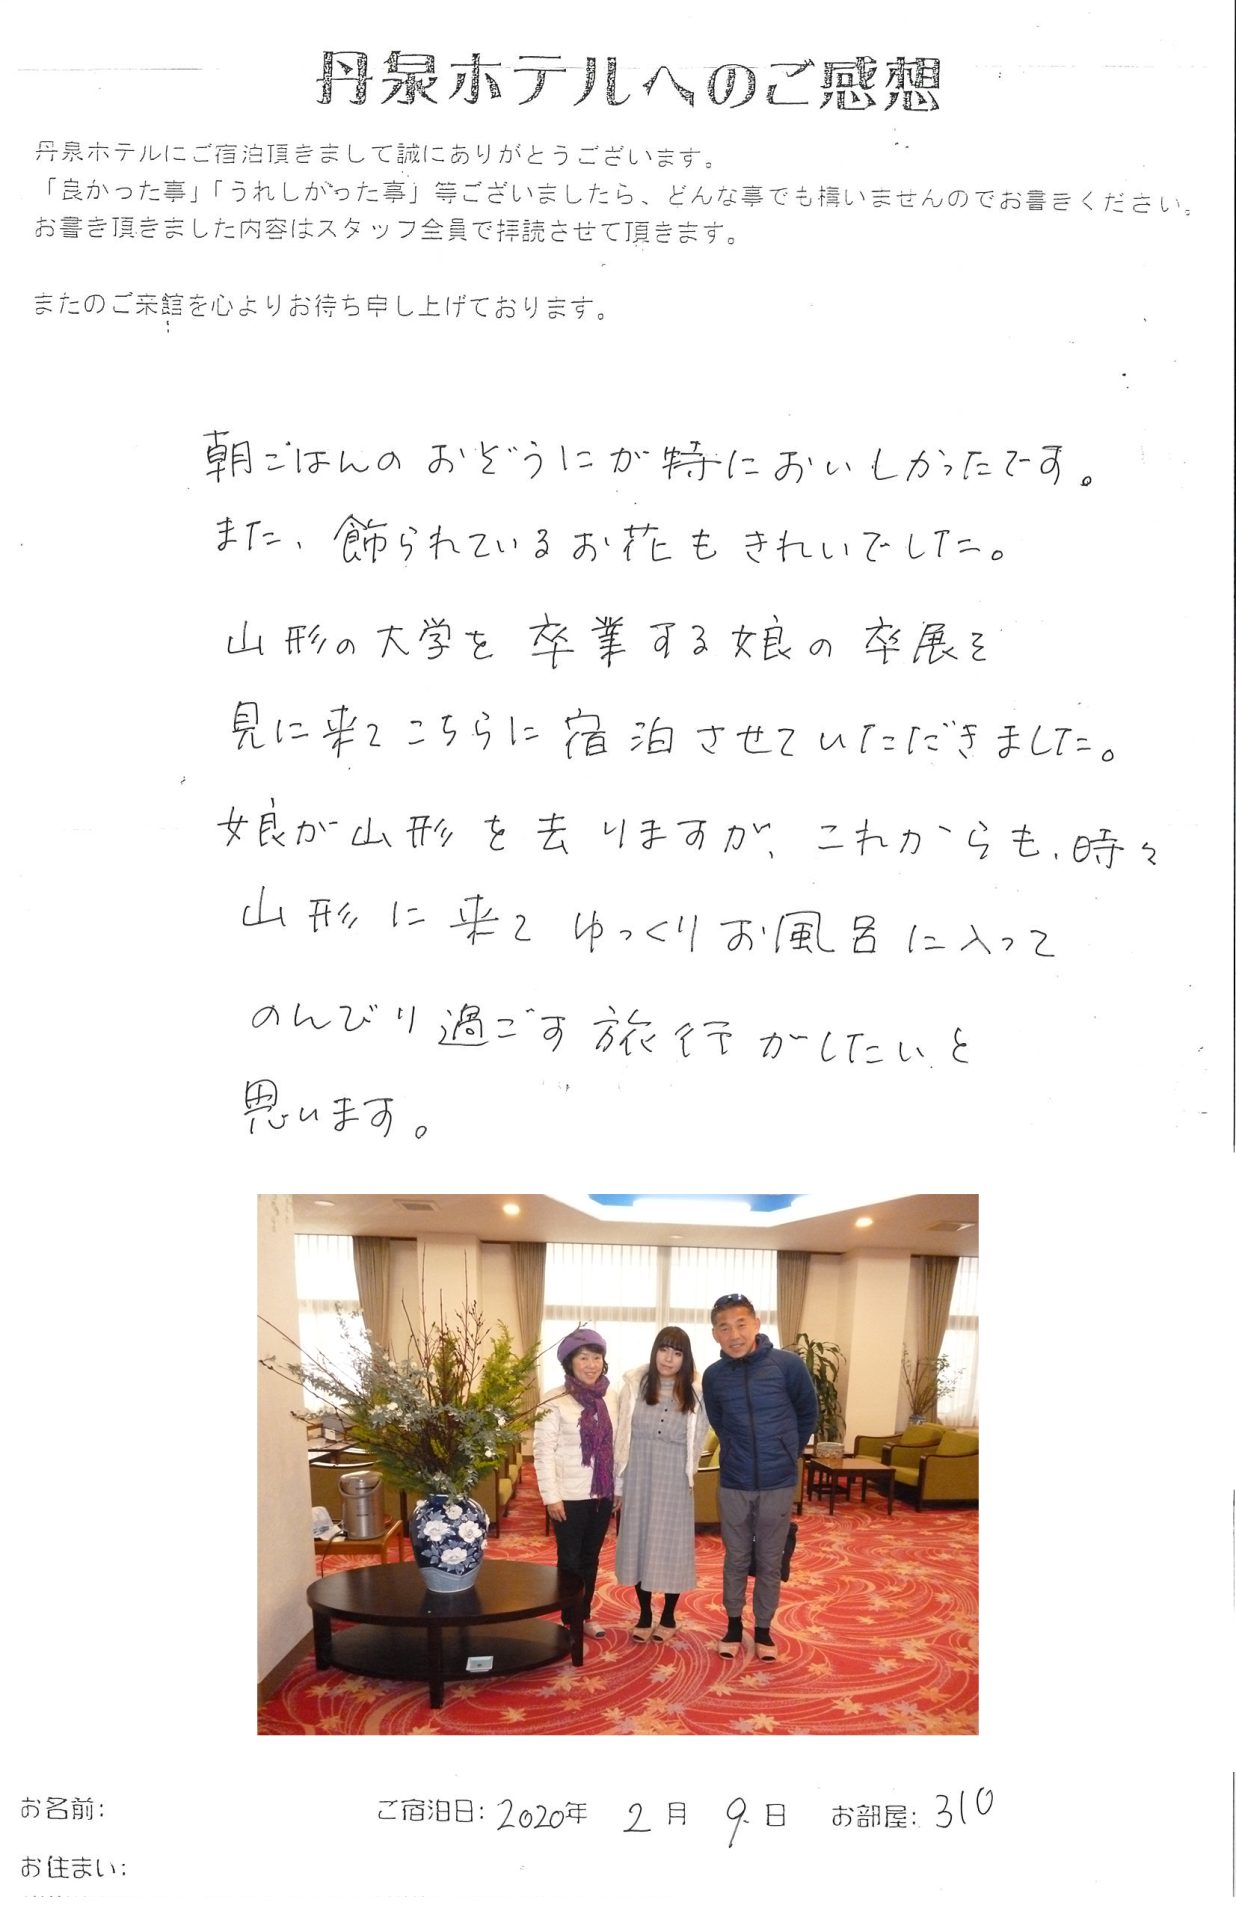 丹泉ホテルへのご感想
丹泉ホテルにご宿泊頂きまして誠にありがとうございます。
「良かった事」「うれしがった事」等ございましたら、どんな事でも構いませんのでお書きください。
お書き頂きました内容はスタッフ全員で拝読させて頂きます。
またのご来館を心よりお待ち申し上げております。
朝ごはんのおぞうにが特においしかったです。
また、飾られているお花もきれいでした。
山形の大学を卒業する娘の卒展を
見に来てこちらに宿泊させていただきました。
娘が山形を去りますが、これからも、時々
山形に来てゆっくりお風呂に入って
のんびり過ごす旅行がしたいと
思います。
お名前:
ご宿泊日: 2020年 2月 9日 お部屋: 310
お住まい: